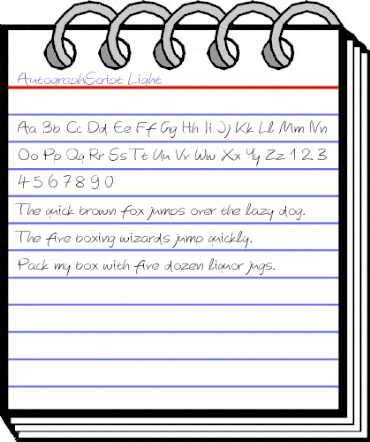 AutographScript Light
Aa Bb Cc Dd Ee Ff Gg Hh Ii Jj Kk Ll Mm Nn
Oo Pp Qq Rr Ss Tt Uu Vv Ww Xx Yy Zz 1 2 3
4 5 6 7 8 9 0
The quick brown fox jumps over the lazy dog.
The five boxing wizards jump quickly.
Pack my box with five dozen liquor jugs.